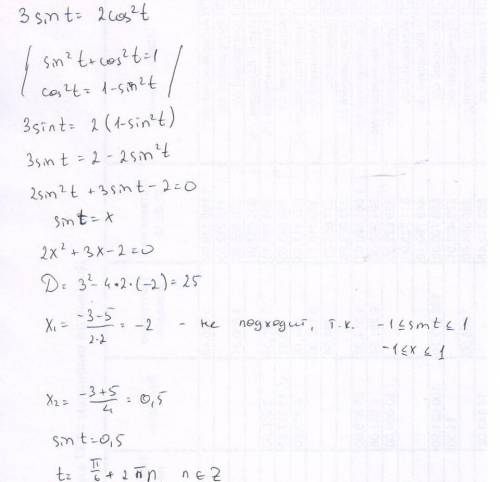 3 sin t = 2cos²t
sin²t + cos²t = 1
cos²t = 1 - sin²t
3sint = 2(1-sin²t)
3sint = 2 - 2sin²t
2sin²t + 3sint - 2 = 0
sint = x
2x² + 3x - 2 = 0
D = 3² - 4*2*(-2) = 25
x₁ = (-3-5)/(2·2) = -2 - не подходит, т.к. -1 ≤ sint ≤ 1
-1 ≤ x ≤ 1
x₂ = (-3+5)/4 = 0,5
sin t = 0,5
t = π/6 + 2πn n ∈ Z